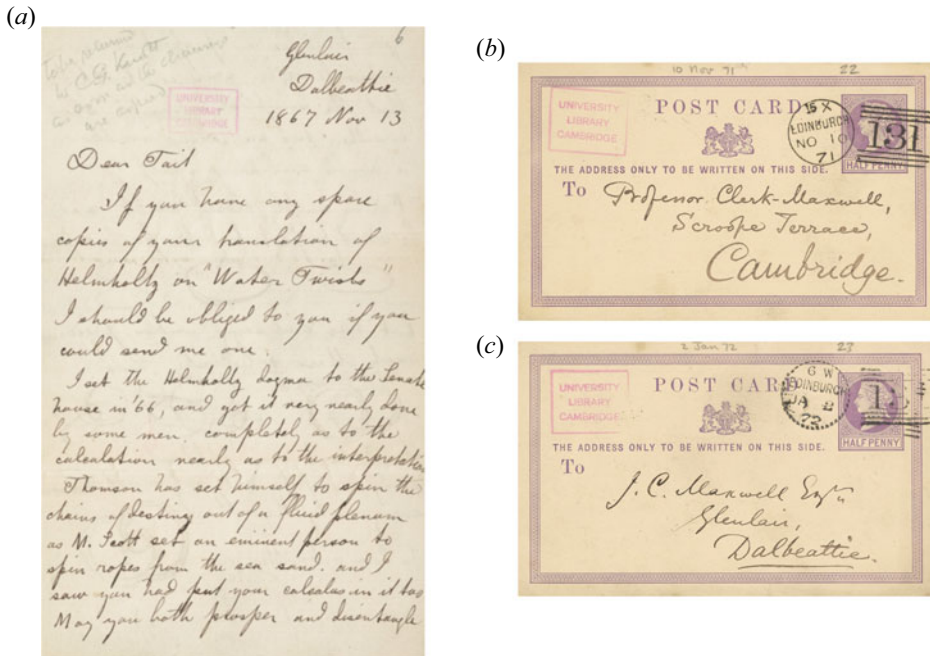 (a)
6
To be returned
to C. G. Knott
as soon as the
are copied
UNIVERSITY
LIBRARY
CAMBRIDGE
Glenlair
Dalbeattie
1867 Nov 13
Dear Tait
If you have any spare
copies of your translation of
Helmholtz on "Water Twists"
I should be obliged to you if you
could send me one.
I set the Helmholtz dogma to the Senate
house in '66, and got it very nearly done
by some men, completely as to the
calculation nearly as to the interpretation
Thomson has set himself to spin the
chains of destiny out of a fluid plenum
as M. Scott set an eminent person to
spin ropes from the sea sand. and I
saw you had put your calculus in it too
May you both prosper and disentangle
(b)
10 Nov 71
22
UNIVERSITY
LIBRARY
CAMBRIDGE
POST CARD
15 X
EDINBURGH
NO 10
71
131
HALF PENNY
THE ADDRESS ONLY TO BE WRITTEN ON THIS SIDE.
To
Professor Clerk-Maxwell,
Scroope Terrace,
Cambridge.
(c)
2 Jan 72
23
UNIVERSITY
LIBRARY
CAMBRIDGE
POST CARD
6 W
EDINBURGH
JA 2
72
HALF PENNY
THE ADDRESS ONLY TO BE WRITTEN ON THIS SIDE.
To
J. C. Maxwell Esqre
Glenlair,
Dalbeattie.